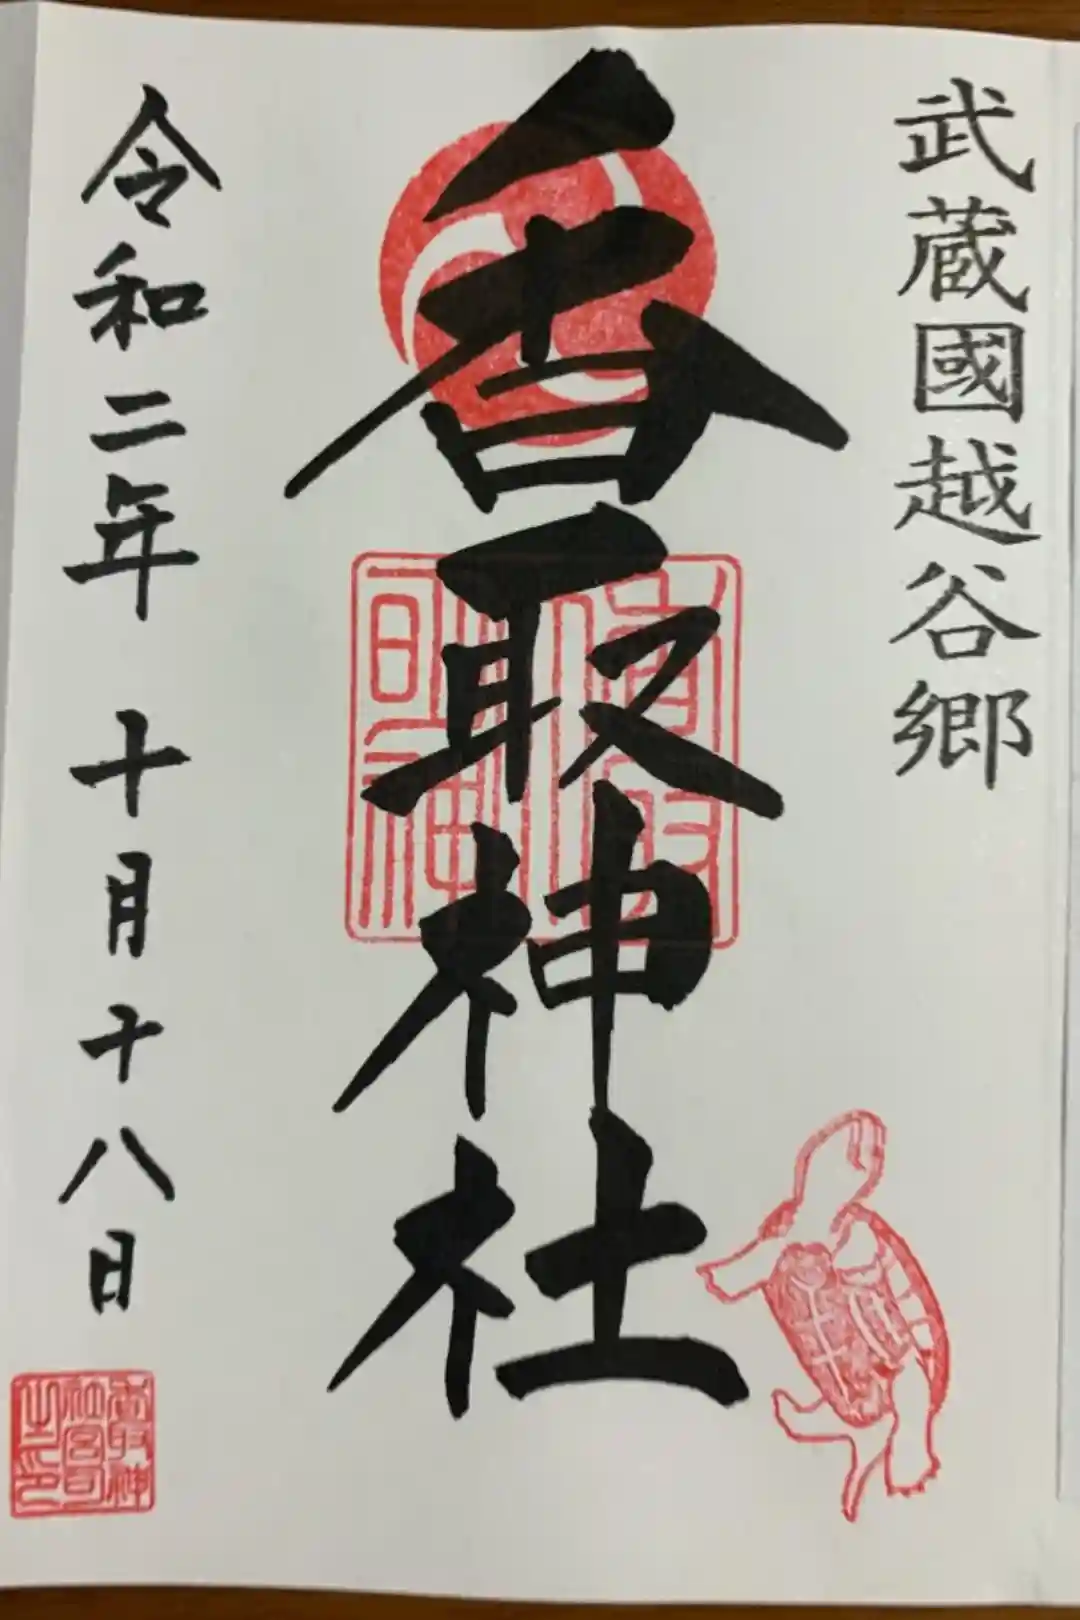 武蔵國越谷郷
香取神社
令和二年 十月十八日
香取大明神
香取神社宮司之印